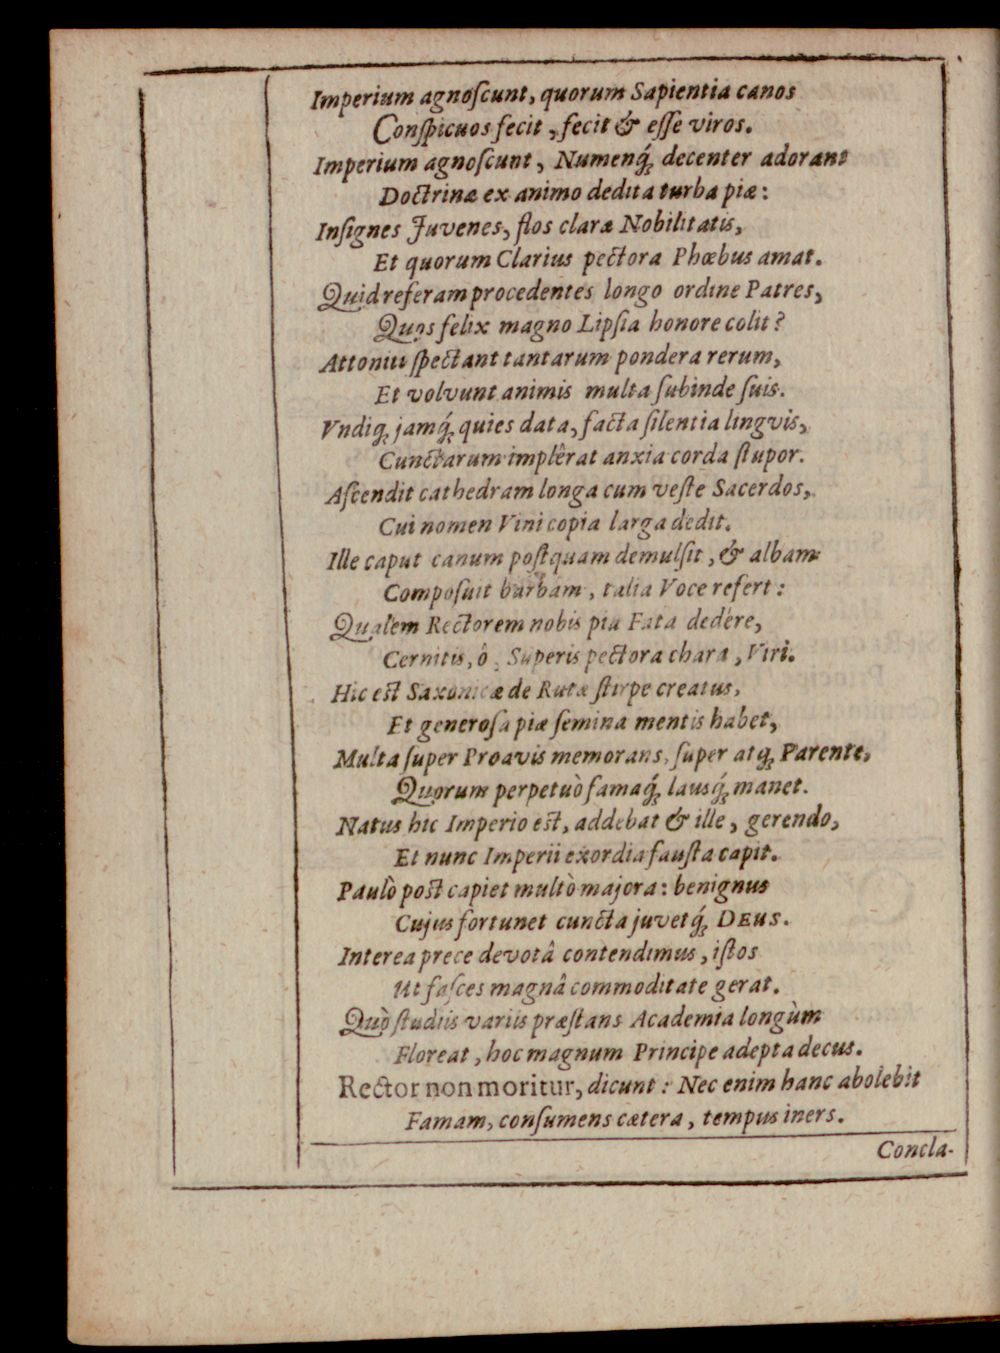 Imperium agnoſcunt, quorum Sapientia canos
Conſpicuos fecit, fecit & eſſe viros.
Imperium agnoſcunt, Numenq́; decenter adorant
Doctrinæ ex animo dedita turba piæ:
Inſignes Juvenes, flos claræ Nobilitatis,
Et quorum Clarius pectora Phœbus amat.
Quid referam procedentes longo ordine Patres,
Quos felix magno Lipſia honore colit?
Attoniti ſpectant tantarum pondera rerum,
Et volvunt animis multa ſubinde ſuis.
Vndiq; jamq́; quies data, facta ſilentia lingvis,
Cunctarum implêrat anxia corda ſtupor.
Aſcendit cathedram longa cum veſte Sacerdos,
Cui nomen Vini copia larga dedit.
Ille caput canum poſtquam demulſit, & albam
Compoſuit barbam, talia Voce refert:
Qualem Rectorem nobis pia Fata dedére,
Cernitis, ô, Superis pectora chara, Viri.
Hic eſt Saxonicæ de Rutæ ſtirpe creatus,
Et generoſa piæ ſemina mentis habet,
Multa ſuper Proavis memorans, ſuper atq; Parente,
Quorum perpetuò famaq́; lausq́; manet.
Natus hic Imperio eſt, addebat & ille, gerendo,
Et nunc Imperii exordia fauſta capit.
Paulò poſt capiet multò majora: benignus
Cujus fortunet cuncta juvetq́; DEUS.
Interea prece devotâ contendimus, iſtos
Ut faſces magnâ commoditate gerat.
Quò ſtudiis variis præſtans Academia longùm
Floreat, hoc magnum Principe adepta decus.
Rector non moritur, dicunt: Nec enim hanc abolebit
Famam, conſumens cætera, tempus iners.
Concla-